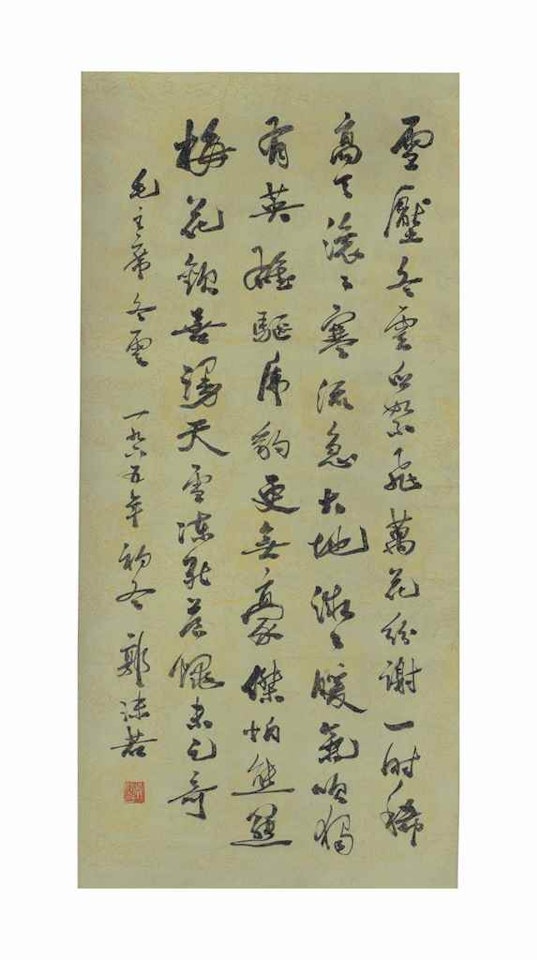 雪壓冬雲白絮飛萬花紛謝一时稀
高天滾〻寒流急大地微〻暖氣吹獨
有英雄驅虎豹更無豪傑怕熊羆
梅花歡喜漫天雪凍死蒼蠅未足奇
毛主席冬雲 一九六五年初冬 郭沫若